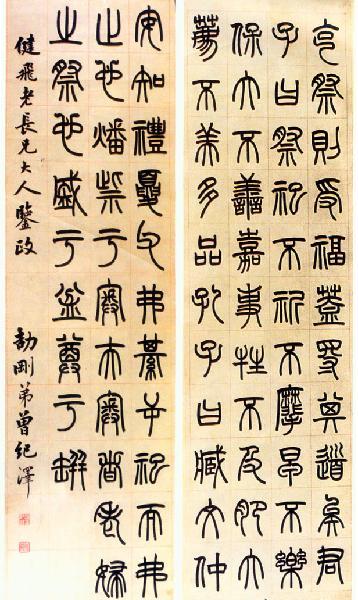 克祭則受福蓋得其道矣君
子曰祭祀不祈不麾早不樂
保大不善嘉事牲不及肥大
薦不美多品孔子曰臧文仲
安知禮夏父弗綦逆祀而弗
止也燔柴于奧夫奧者老婦
之祭也盛于盆尊于缾
健飛老長兄大人鑒政 劼剛弟曾紀澤